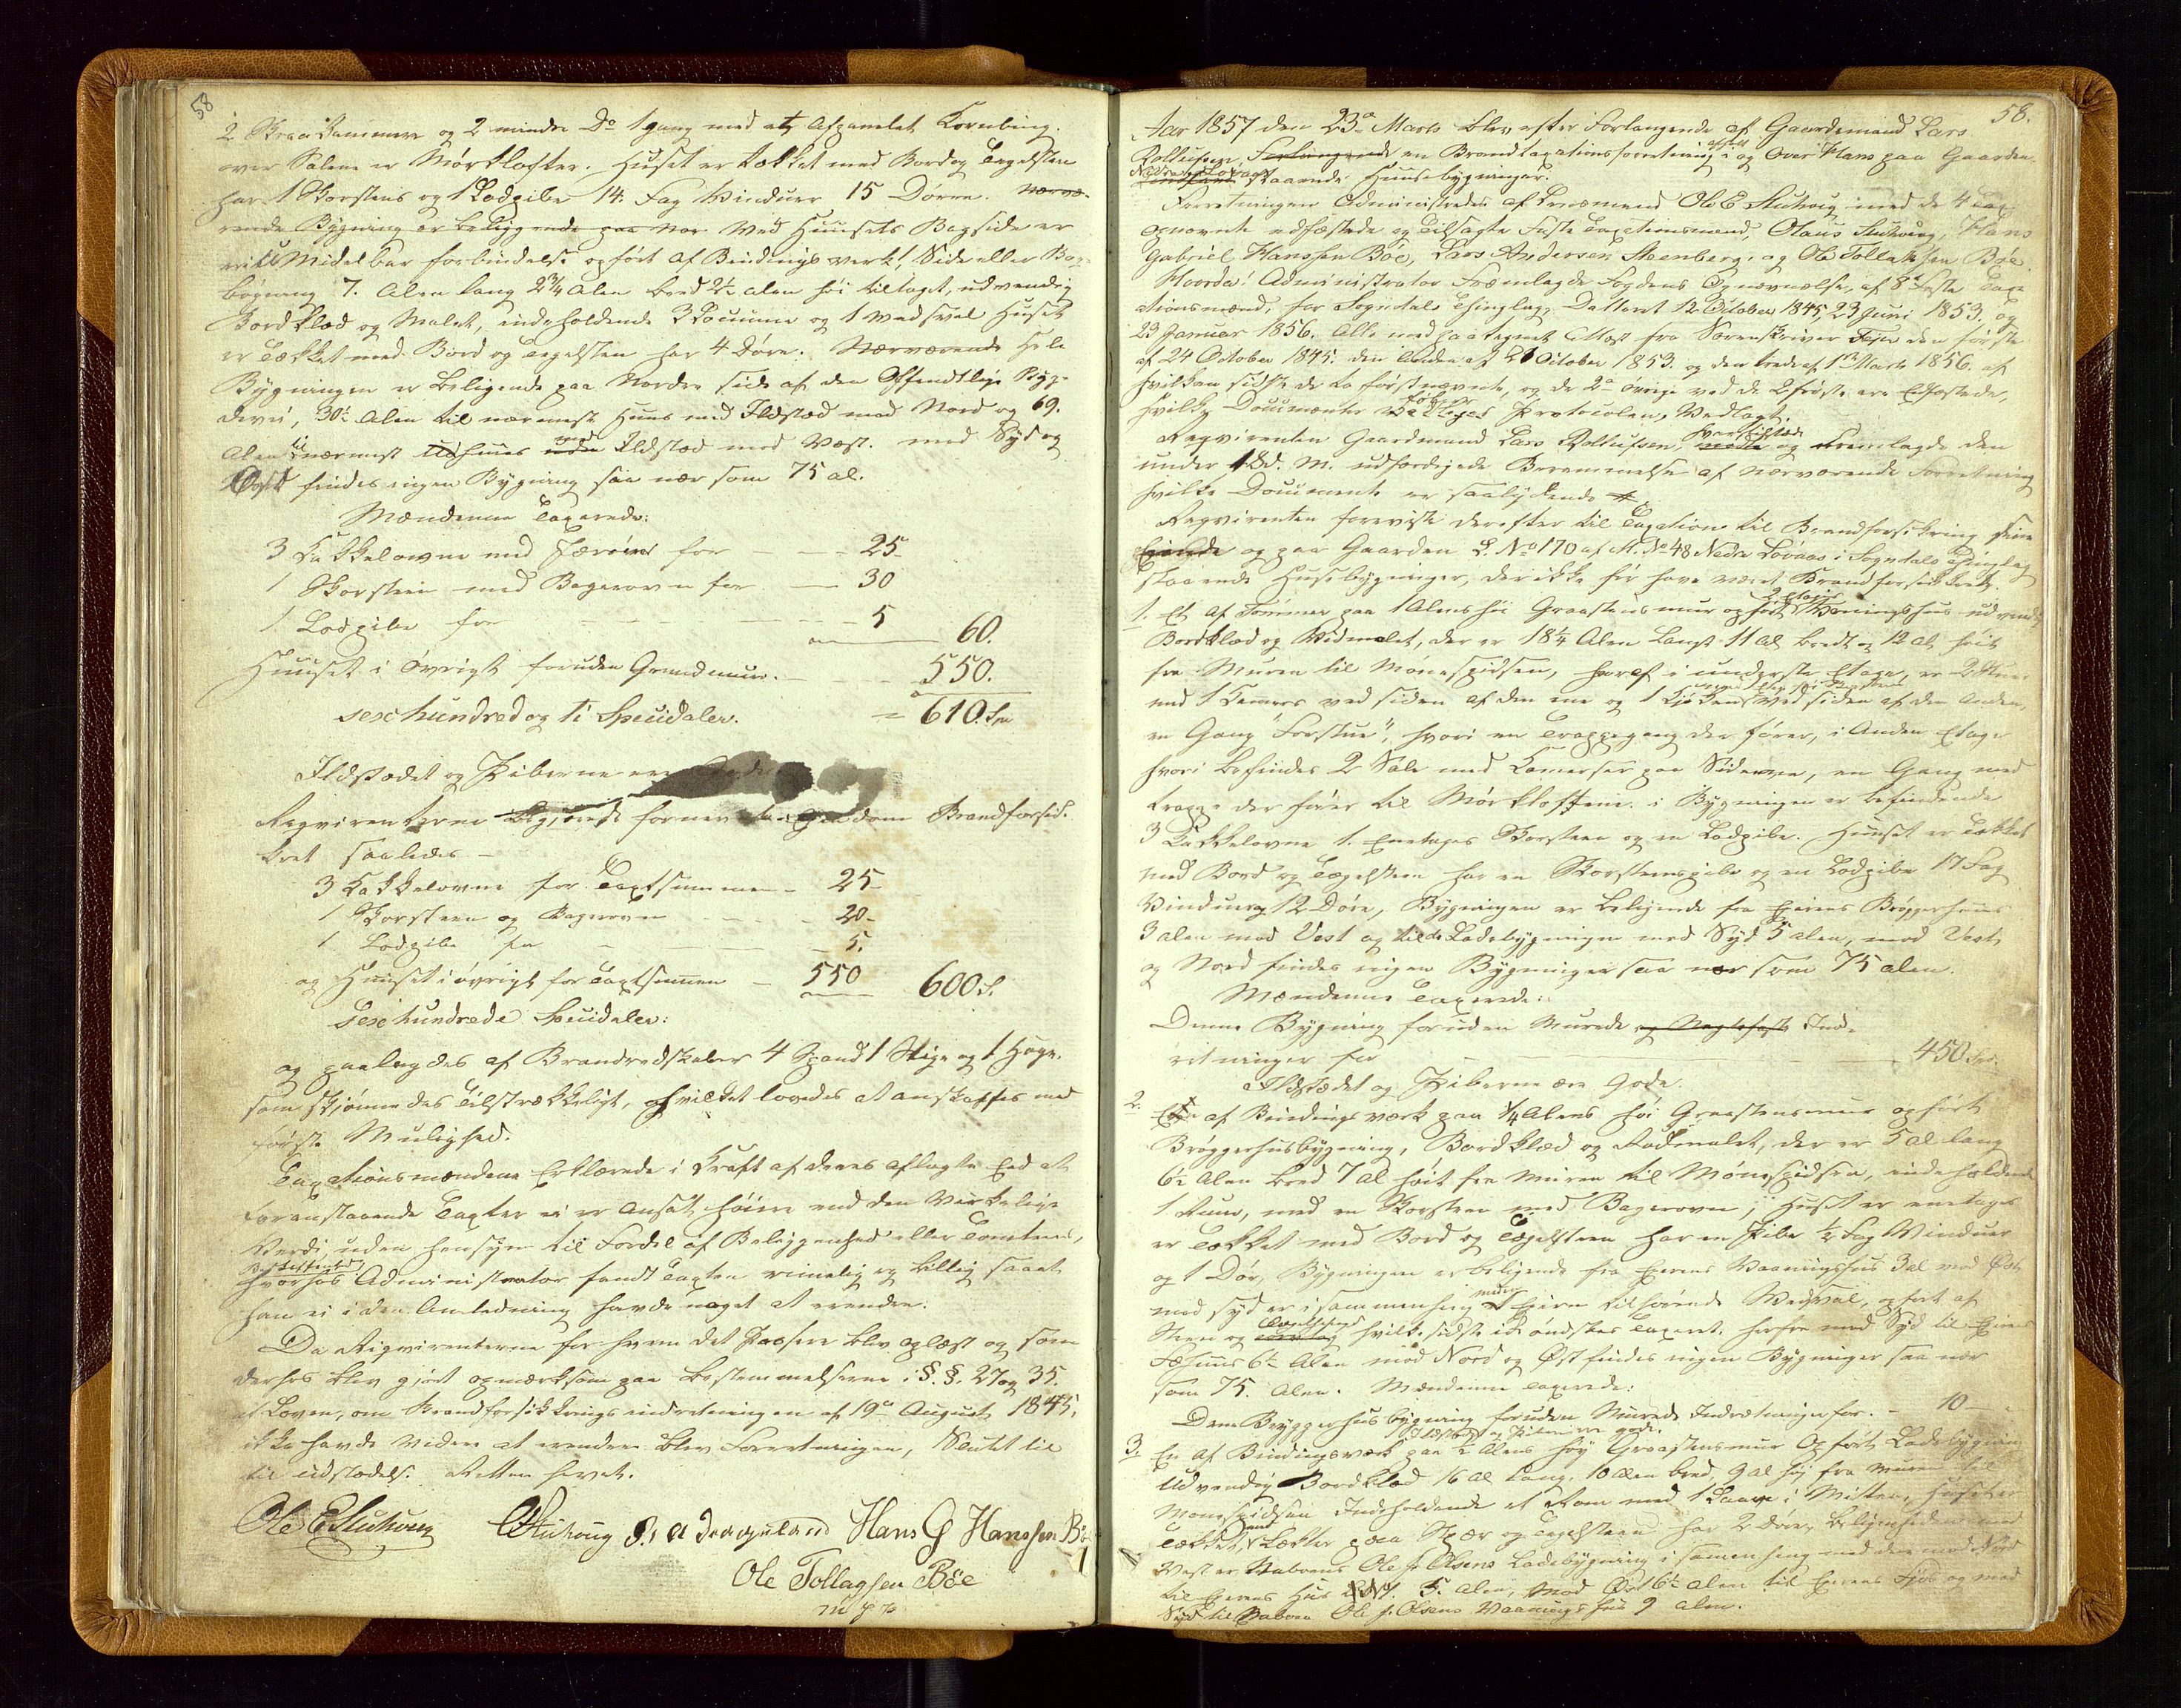 58
2 Kammere og 2 mindre Do 1 gang med et afpanelet Kornbing.
over Salene er Mørklofter. Huset er tækket med Bord og Tegelsten
har 1 Skorsten og 1 Lodpibe 14 Fag Vinduer 15 Dørre. Nærvæ-
rende Bygning er beliggende paa Nor Ved Huusets Bagside er
Midelbar forbindelse opført af Bindingsverk, Side eller
bygning 7. Alen lang 2¾ Alen bred 2½ alen høi til taget, udvendig
Bordklæd og Malet, indeholdende 3 Rumme og 1 Huset
er Tækket med Bord og Tegelsten har 4 Døre. Nærværende Hele
Bygningen er beligende paa Nordre side af den Offendtlige Byg-
devei, 30½ Alen til nærmeste Huus med Ildsted mod Nord og 69.
Alen til nærmest Udhuus uden med Ildsted mod Vest. mod Syd og
Øst findes ingen Bygning saa nær som 75 al.
Mændene Taxerede:
3 Kakkelovne med for 25
1 Skorsten med Bagerovn for 30
1 Lodpibe for 5 60.
Huuset i Øvrigt foruden Grundmuur. 550.
sexhundred og ti Speiidaler. = 610. Spd
Ildstædet og Piberne ere
Reqvirenterne Begjærede Brandforsik-
kret saaledes -
3 Kakkelovne for Taxtsummen - 25-
1 Skorsteen og Bagerovn 20-
1 Lodpibe for 5.
og Huuset i øvrigt for Taxtsummen - 550 600 S.
Sexhundrede Speiidaler:
og paalagdes af Brandredskaber 4 Spand 1 Stige og 1 Hage.
som skjønnedes Tilstrækkeligt, hvilket lovedes at anskaffes med
første Mulighed.
Taxationsmændene Erklærede i Kraft af deres aflagte Eed at
Foranstaaende Taxter ei er ansat høiere end den Virkelige
Værdi, uden hensyn til Fordel af Beliggenhed eller Tomtens,
Beskaffenhed
hvorhos Administrator fandt Taxten rimelig og billig saa at
han ei i den Anledning havde noget at erindre.
Da Reqvirenterne for hvem det Passere blev oplæst og som
derhos blev gjort opmærksom paa Bestemmelserne i §. §. 27 og 35.
i Loven, om Brandforsikkringsindretningen af 19de August 1845,
ikke havde videre at erindre blev Forretningen, Sluttet til
til udstædelse. Retten hevet.
Ole E Stuhoug OStuhoug P. A Dragseland Hans G Hanssen Bö
Ole Tollagsen Böe
m p p
58.
Aar 1857 den 23de Marts blev efter Forlangende af Gaardemand Lars
Rolleifsen, Forlangende en Brandtaxationsforretning afholdt i og Over Hans paa Gaarden
Nedre Løvaas staaende Huusebygninger.
Forretningen Administredes af Lensmand Ole E Stuhoug med de 4
opnævnte edfæstede og Tilsagte Faste Taxationsmænd, Olaus Stuhoug, Hans
Gabriel Hanssen Böe, Lars Andersen Steenberg, og Ole Tollaksen Böe.
Hvorda! Administrator Fremlagde Fogdens Opnævnelse, af 8te Faste Taxa
ationsmænd, for Sogndals Thinglag, Datteret 12 October 1845, 23 Juni 1853. og
23 Januar 1856. Alle med paategnet Attest fra Sorenskriver Feyer den første
af 24 October 1845. den anden af 21 October 1853. og den tredie af 1ste Marts 1856. af
hvilken sidste de to førstnævnte, og de 2de øvrige ved de 2 første ere Edfæstede,
hvilke Documenter Protocolen, Vedlagt.
Reqvirenten Gaardmand Lars Rolleifsen, mødte og fremlagde den
under 18 d. M. udfærdigede Berammelse af nærværende Forretning
hvilke Document er saalydende
Reqvirenten foreviste derefter til Taxation til Brandforsikring Sine
Eiende og paa Gaarden L. No 170 af M. No 48 Nedre Løvaas i Sogndals Thinglag
staaende Husebygninger, der ikke før have været Brandforsikkrede.
1. Et af Tømmer paa 1 Alens høi Graastensmur opført 2 Etages Vaaningshus udvendig
Bordklæd og Hvidmalet, der er 18¼ Alen Langt 11 Al bredt og 12 al høit
fra Muren til Mønespidsen, hvoraf i underste Etage, er 2 Stuer
med 1 Kamers ved siden af den ene og 1 Kjøken ved siden af den Anden,
en Gang "Forstue", hvori en Trappegang der fører, i Anden Etage
hvori befindes 2 Sale med Kamerser paa Siderne, en Gang med
trappe der fører til Mørkloftene. i Bygningen er befindende
3 Kakkelovne 1. Enetages Skorsteen og en Lodpibe. Huuset er Tækket
med Bord og Tægelsteen har en Skorstenspibe og en Lodpibe 17 Fag
Vinduer og 12 Døre, Bygningen er beligende fra Eierens Bryggerhuus
3 alen mod Vest og til do Ladebygningen mod Syd 5 alen, mod Vest
og Nord findes ingen Bygninger saa nær som 75 alen.
Mændenne Taxerede:
Denne Bygning foruden Murede og Naglefaste Ind-
retninger for 450 Spd.
Ildstædet og Piberne ere Gode.
2. Et af Bindingsværk paa ¼ Alens høi Graastensmur opført
Brøggerhusbygning, Bordklæd og Rødmalet, der er 5 al lang
6½ Alen bred 7 al høit fra Muren til Mønespidsen, indeholdende
1 Rum, med en Skorsteen med Bagerovn; Huset er enetages
er Tækket med Bord og Tægelsteen har en Pibe ½ Fag Vinduer
og 1 Dør, Bygningen er beligende fra Eierens Vaaningshus 3 al mod Øst
mod Syd er i sammenheng med Eieren tilhørende Vedsval, opført af
Steen og hvilke sidste ikke ønskes Taxeret. herfra mod Syd til Eierens
Fæhuus 6½ Alen mod Nord og Øst findes ingen Bygninger saa nær
som 75. Alen. Mændenne taxerede:
Denne Bryggerhusbygning foruden Murede Indretninger for. - 10 -
Ildstædet og Piberne ere gode.
3. En af Bindingsværk paa ½ Alens høy Graastensmur Opført Ladebygning
Udvendig Bordklæd 16 al lang, 10 Alen bred, 9 al høi fra Muren til
Mønespidsen Indeholdende et Rom med 1 Laave i Midten, Huset er
Tækket med Lækter paa Spær og Tægelsteen har 2 Døre, beligenheden mod
Vest er Naboens Ole J. Olsens Ladebygning i samenheng med den mod Nord
til Eierens Hus 5. Alen, Mod Øst 6½ Alen til Eierens Fjøs og mod
Syd til Naboen Ole J. Olsens Vaaningshus 9 alen.